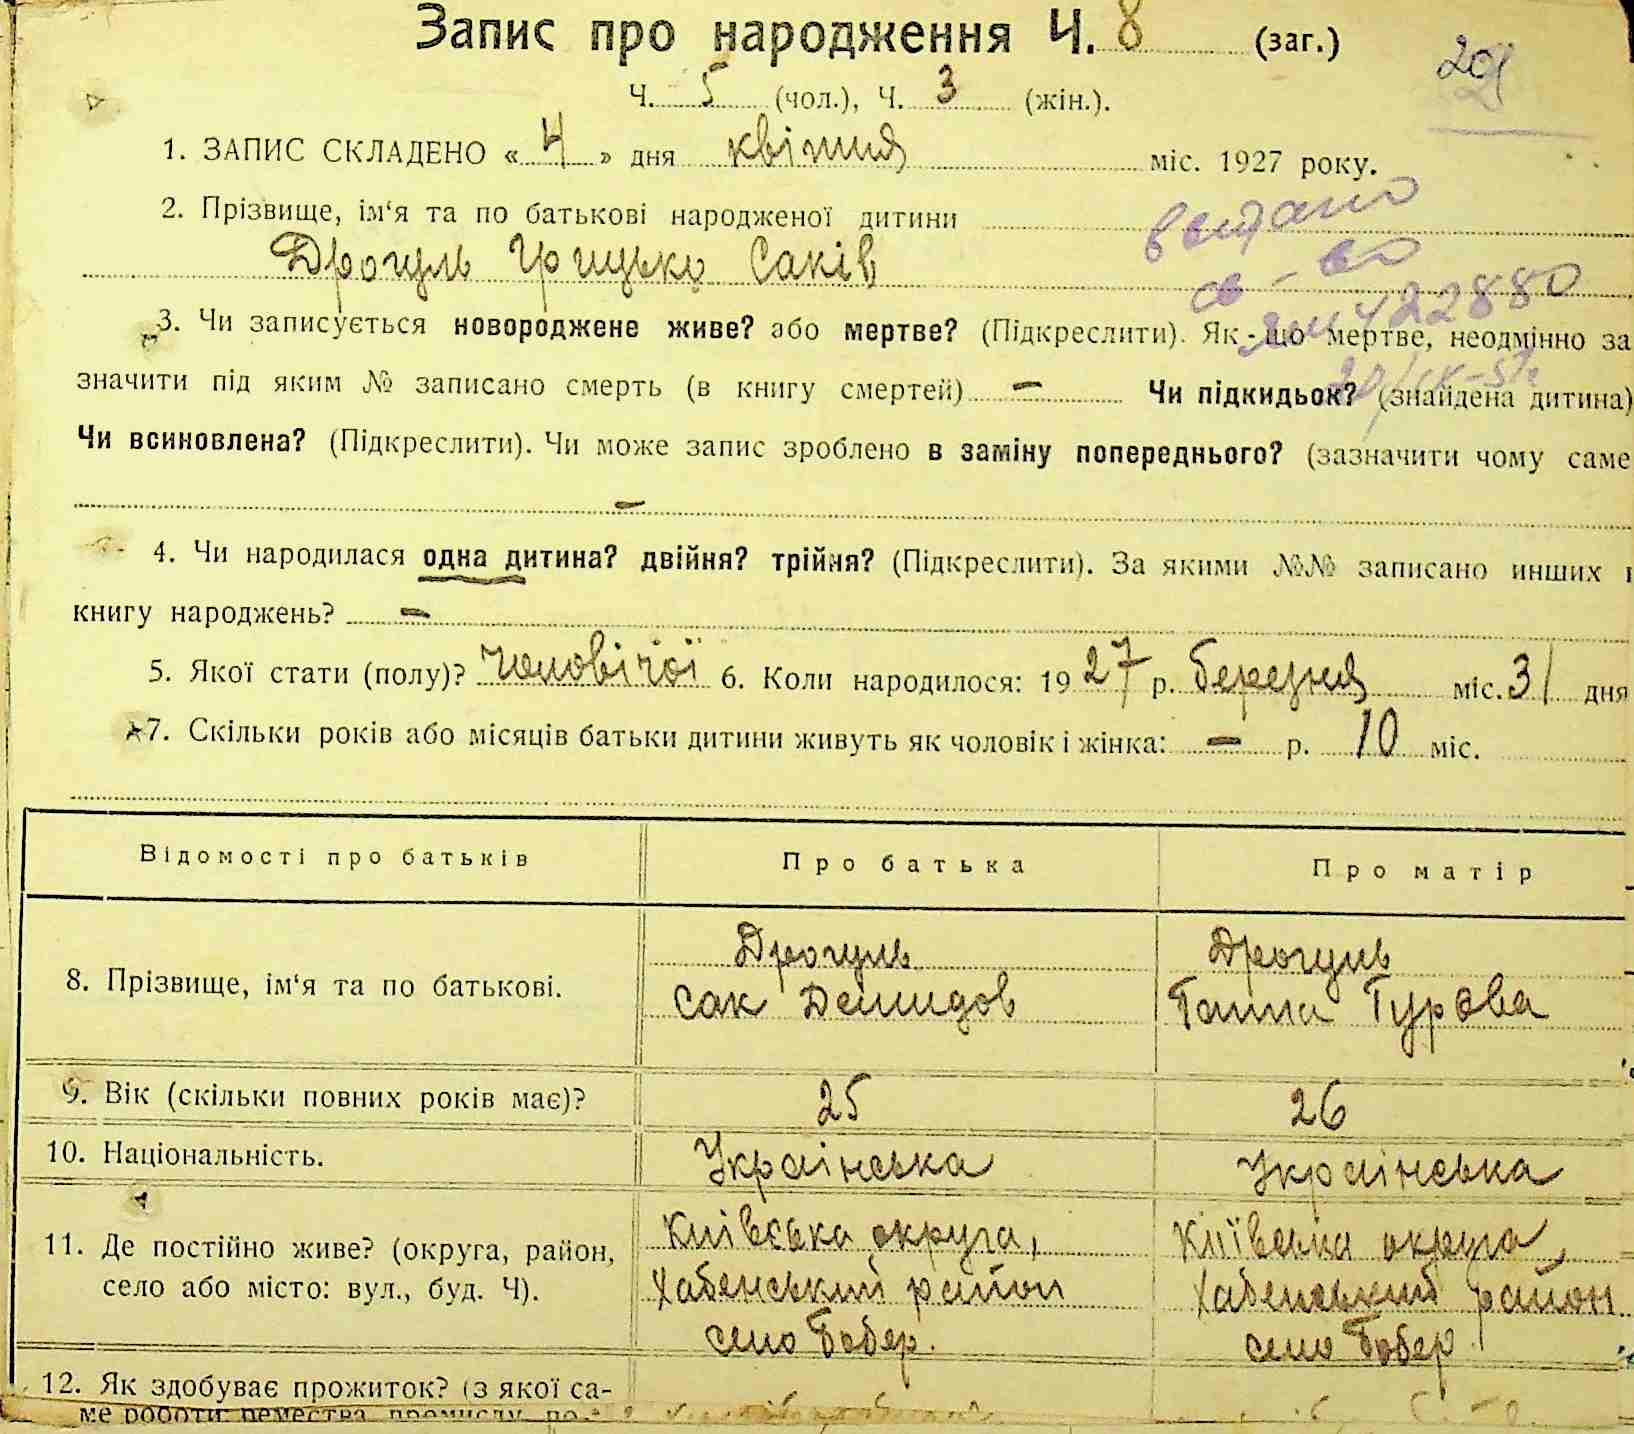 Запис про народження Ч. 8 (заг.)
29
Ч. 5 (чол.), Ч. 3 (жін.).
1. ЗАПИС СКЛАДЕНО « 4 » дня квітня міс. 1927 року.
2. Прізвище, ім‘я та по батькові народженої дитини
видано
Дрогуль Грицько Саків
св-во
422880
3. Чи записується новороджене живе? або мертве? (Підкреслити). Як-що мертве, неодмінно за
значити під яким № записано смерть (в книгу смертей) – Чи підкидьок? (знайдена дитина)
Чи всиновлена? (Підкреслити). Чи може запис зроблено в заміну попереднього? (зазначити чому саме
–
4. Чи народилася одна дитина? двійня? трійня? (Підкреслити). За якими №№ записано инших
книгу народжень? –
5. Якої стати (полу)? Чоловічої 6. Коли народилося: 1927 р. березня міс. 31 дня
7. Скільки років або місяців батьки дитини живуть як чоловік і жінка: – р. 10 міс.
Відомості про батьків Про батька Про матір
8. Прізвище, ім‘я та по батькові.
Дрогуль
Сак Демидов
Дрогуль
Ганна Гурєва
9. Вік (скільки повних років має)? 25 26
10. Національність. Українська Українська
11. Де постійно живе? (округа, район,
село або місто: вул., буд. Ч).
Київська округа,
Хабенський район
село Бобер.
Київська округа,
Хабенський район
село Бобер
12. Як здобуває прожиток? (з якої са-
ме роботи, ремества, промислу, по-